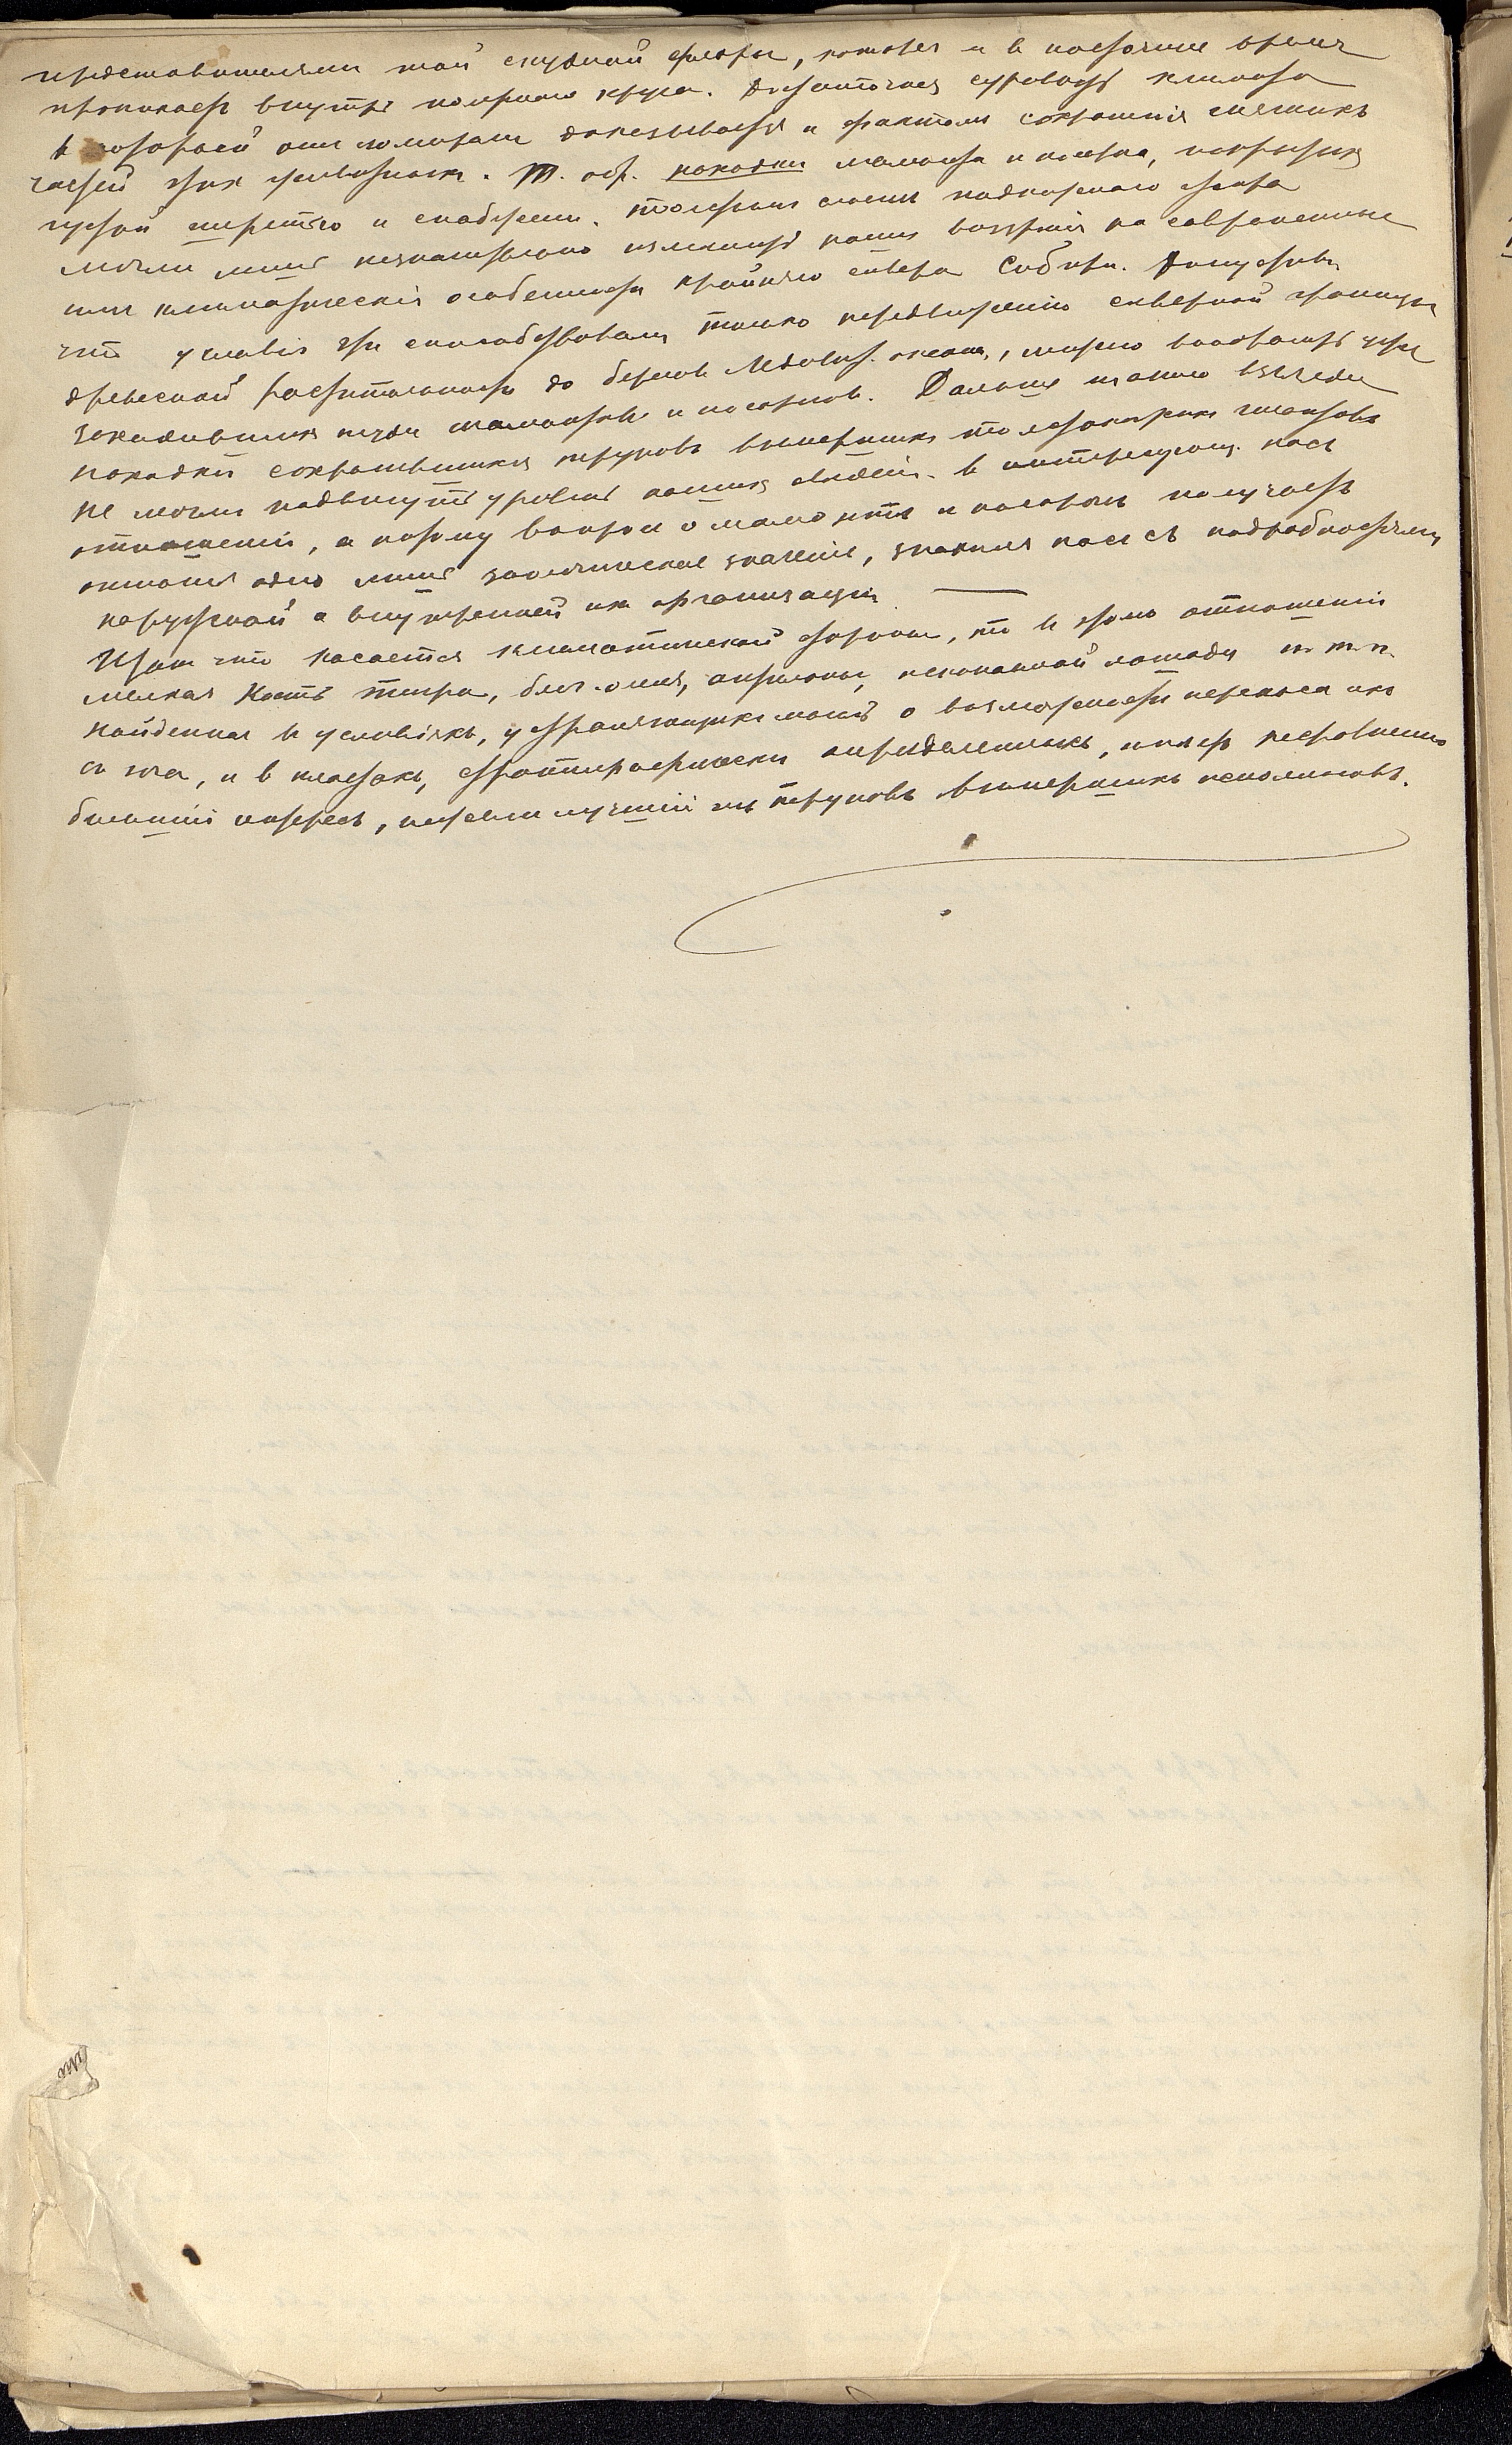 представителями той скудной флоры, которая и в настоящее время
проникает внутрь полярного круга. Достаточная суровость климата
в которой они погибали доказывается и фактом сохранения мягких
частей этих животных. Т. обр. находки мамонта и носорога, покрытых
густой шерстью и снабжени. толстым слоем подкожного жира
могли лишь незначительно изменить наши воззрения на современные
им климатические особенности крайнего севера Сибири. Допустив,
что условия эти способствовали только передвижению северной границы
древесной растительности до берегов Ледовит. океана, можно вообразить себе
заходивших туда мамонтов и носорогов. Дальше такого взгляда
находки сохранившихся трупов вымерших толстокожих гигантов
не могли подвинуть уровня наших сведений. В интересующ. нас
отношении, а потому вопрос о мамонте и носороге получает
отныне одно лишь зоологическое значение, знакомя нас съ подробностями
наружной и внутренней их организации. —
Что касается климатической стороны, то в этом отношении
мелкая кость тигра, благ. оленя, антилопы, ископаемой лошади и т. п.
найденная в условіяхъ, устраняющих мысль о возможности переноса их
с юга, и в пластах, стратиграфически определенныхъ, имеет несравненно
больший интерес, нежели лучший из трупов вымерших исполинов.